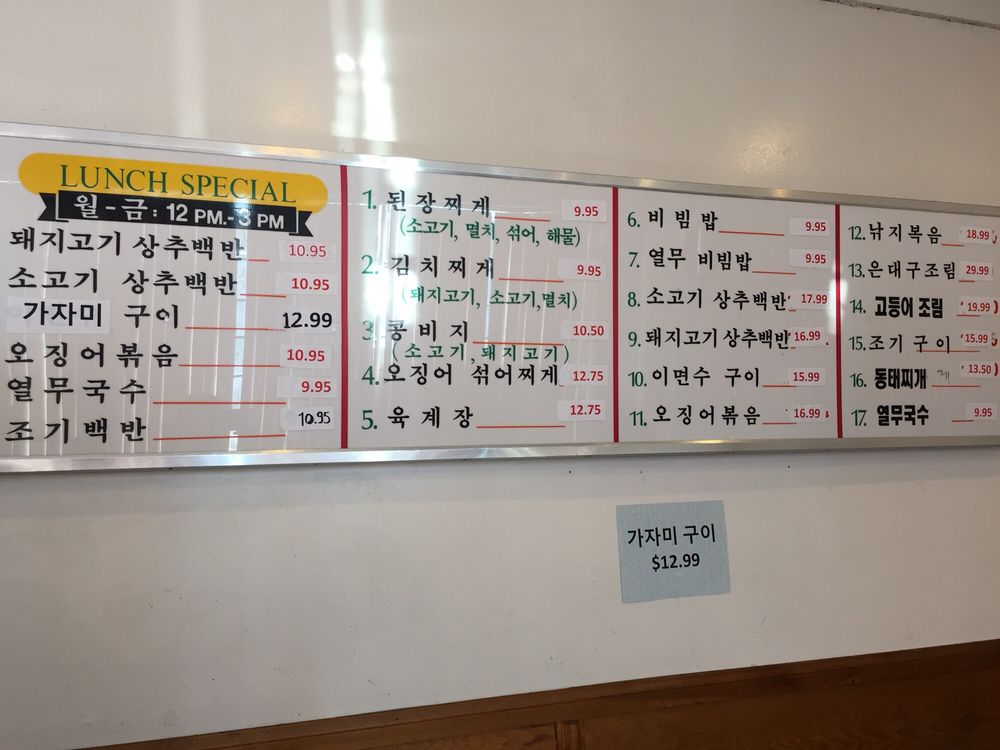 LUNCH SPECIAL
월-금: 12 PM.-3 PM
돼지고기 상추백반 10.95
소고기 상추백반 10.95
가자미 구이 12.99
오징어볶음 10.95
열무국수 9.95
조기백반 10.95
1. 된장찌게 9.95
(소고기, 멸치, 섞어, 해물)
2. 김치찌게 9.95
(돼지고기, 소고기,멸치)
3. 콩비지 10.50
(소고기,돼지고기)
4. 오징어 섞어찌게 12.75
5. 육계장 12.75
6. 비빔밥 9.95
7. 열무 비빔밥 9.95
8. 소고기 상추백반 17.99
9. 돼지고기 상추백반 16.99
10. 이면수 구이 15.99
11. 오징어볶음 16.99
12. 낚지볶음 18.99
13. 은대구조림 29.99
14. 고등어 조림 19.99
15. 조기구이 15.99
16. 동태찌개 13.50
17. 열무국수 9.95
가자미 구이
$12.99